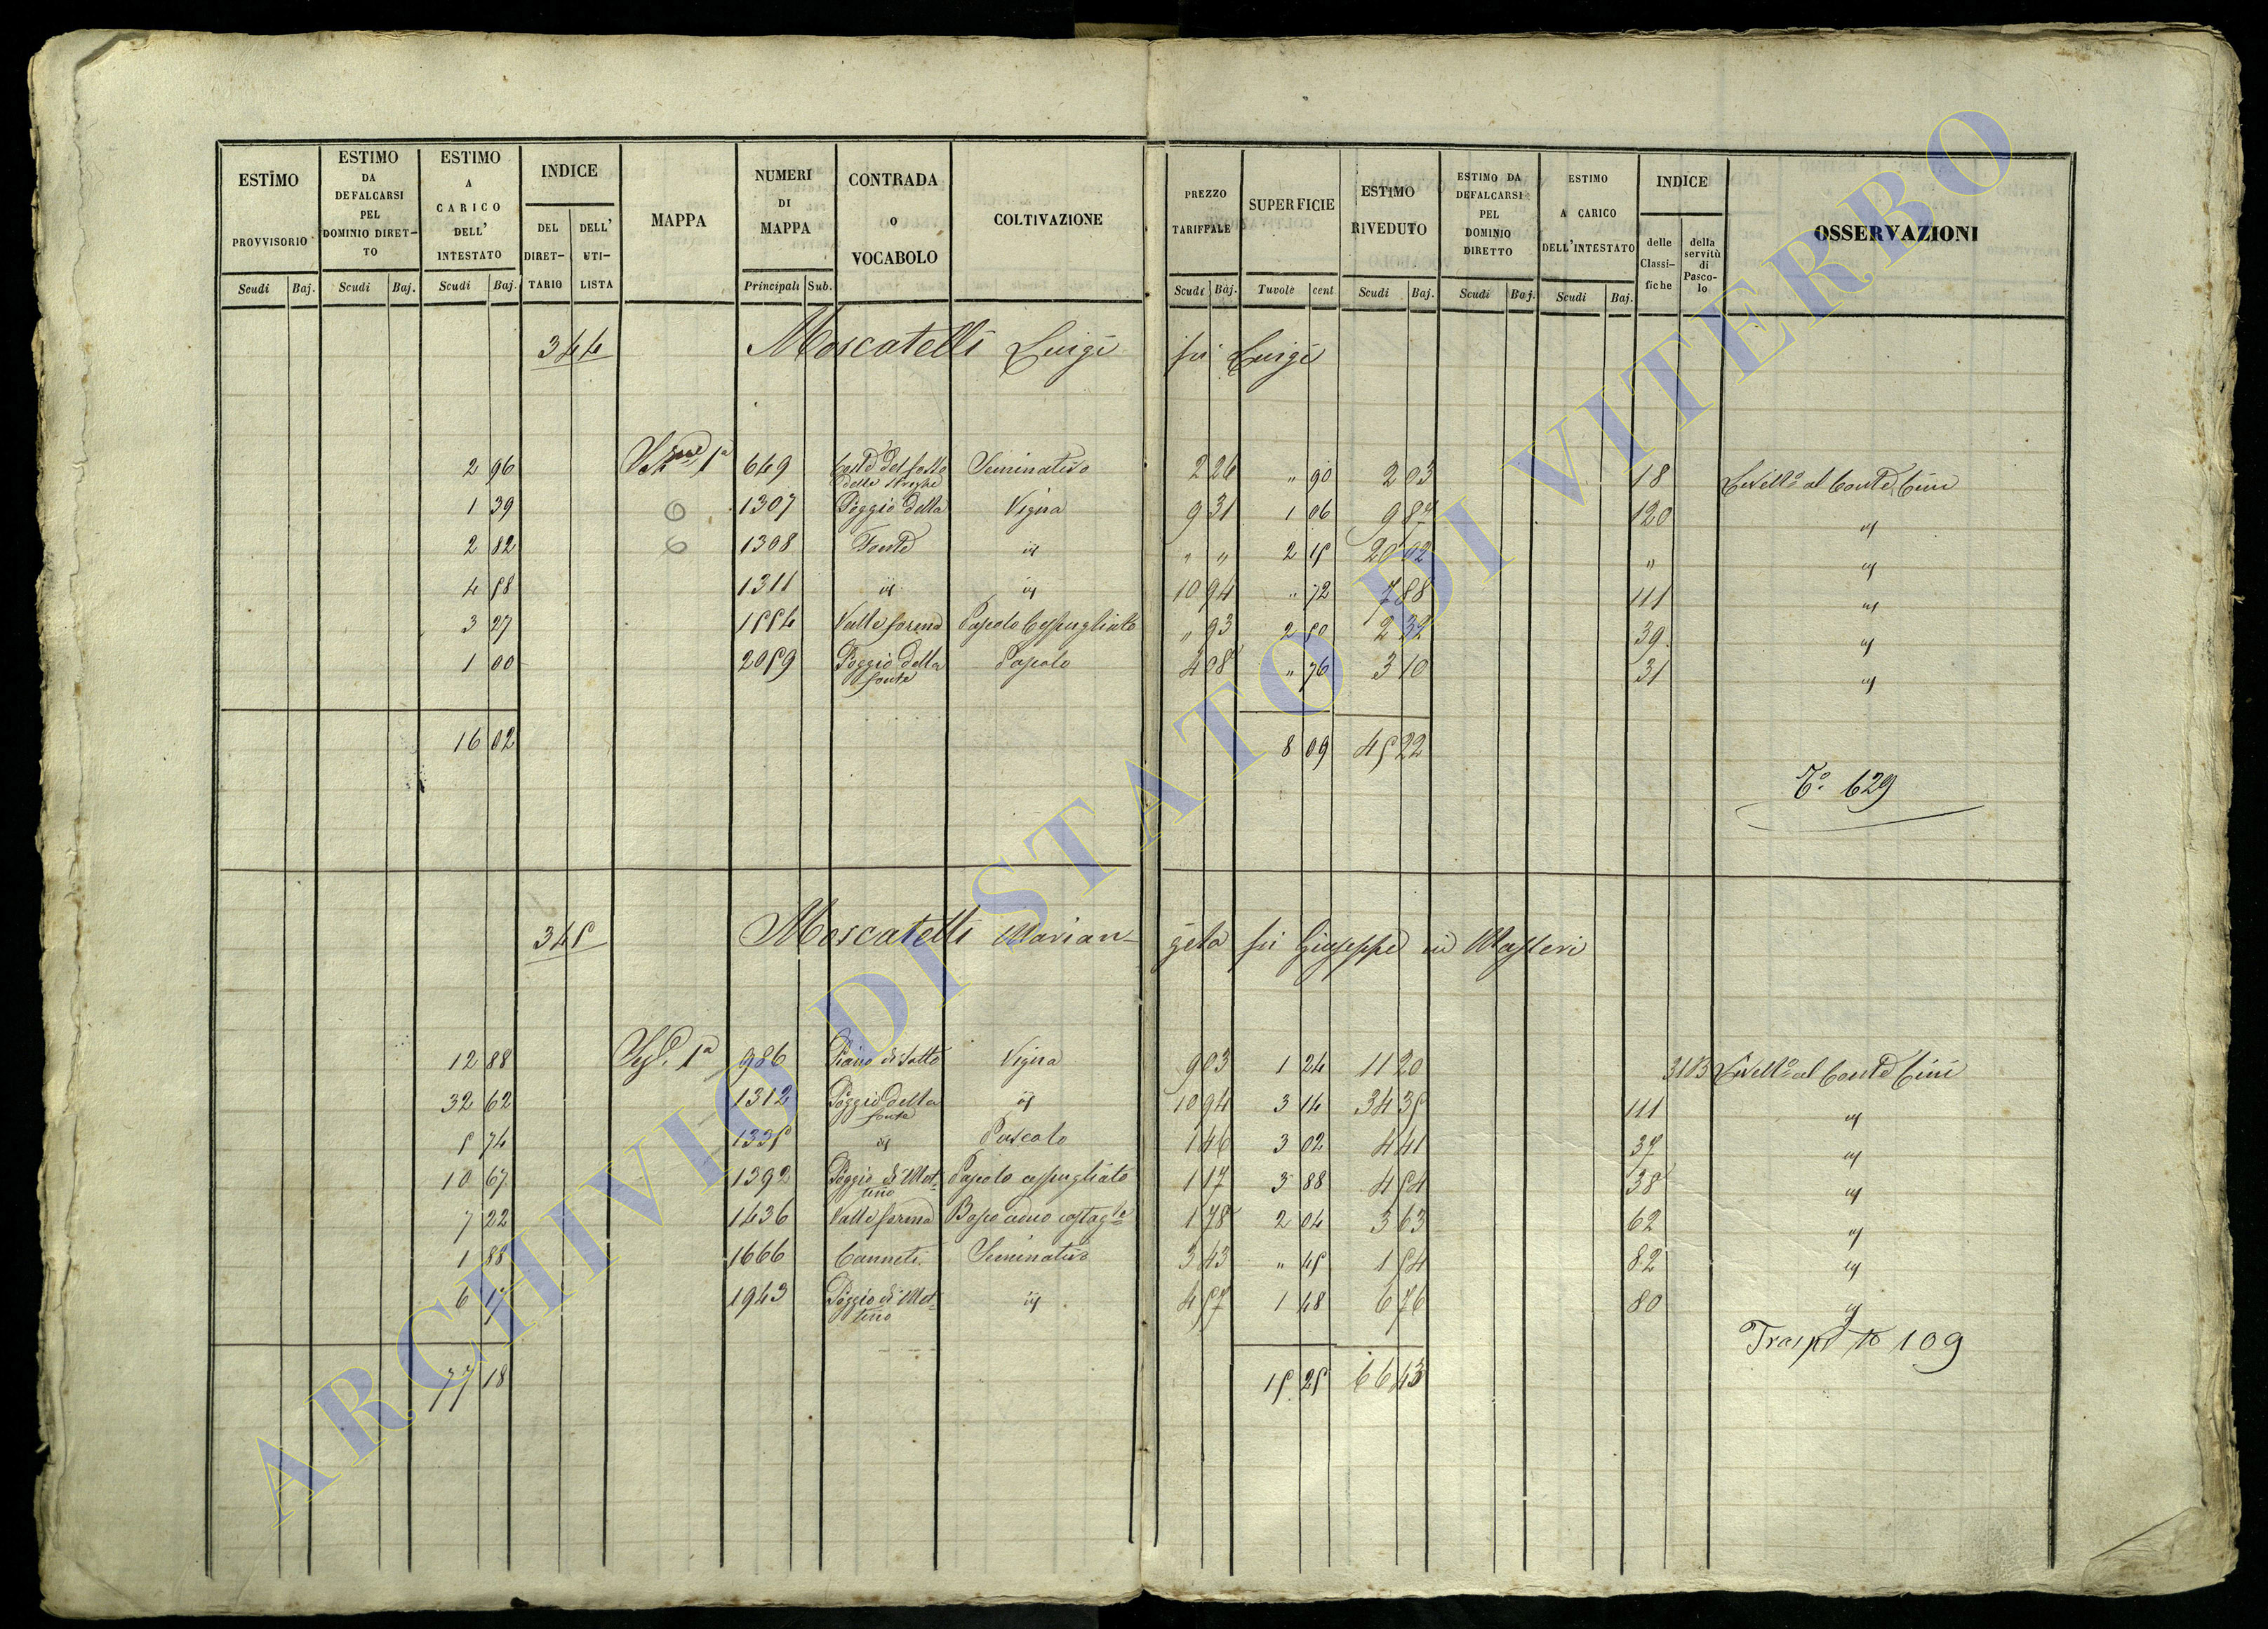 ESTIMO PROVVISORIO
ESTIMO DA DEFALCARSI PEL DOMINIO DIRET-TO
ESTIMO A CARICO DELL' INTESTATO
INDICE
DEL DIRET-TARIO
DELL' UTI-LISTA
MAPPA
NUMERI DI MAPPA
CONTRADA O VOCABOLO
COLTIVAZIONE
PREZZO TARIFFALE
SUPERFICIE
ESTIMO RIVEDUTO
ESTIMO DA DEFALCARSI PEL DOMINIO DIRETTO
ESTIMO A CARICO DELL'INTESTATO
INDICE
delle Classi-fiche
della servitù di Pasco-lo
OSSERVAZIONI
Scudi Baj. Scudi Baj. Scudi Baj. Principali Sub. Scudi Baj. Tavole cent Scudi Baj. Scudi Baj. Scudi Baj.
344 Moscatelli Luigi fu Luigi
2 96 1ª 649 Coste del fosso delle Streghe Seminativo 2 26 " 90 2 03 18 Livellº al Conte Cini
1 39 1307 Poggio della Vigna 9 31 1 06 9 87 120 "
2 82 1308 Fonte " " " 2 15 20 02 " "
4 58 1311 " " 10 94 " 72 7 88 111 "
3 27 1554 Valle forma Pascolo Cespugliato " 93 2 50 2 32 39 "
1 00 2059 Poggio della fonte Pascolo 4 08 " 76 3 10 31 "
16 02 8 09 45 22
Tº 629
345 Moscatelli Marian-gela fu Giuseppe in
12 88 1ª 986 Piano di sotto Vigna 9 03 1 24 11 20 Livellº al Conte Cini
32 62 1312 Poggio della fonte " 10 94 3 14 34 35 111 "
5 74 1335 " Pascolo 1 46 3 02 4 41 37 "
10 67 1392 Poggio di Mot-tino Pascolo cespugliato 1 17 3 88 4 54 38 "
7 22 1436 Valle forma Bosco ceduo castagle 1 78 2 04 3 63 62 "
1 88 1666 Canneti Seminativo 3 43 " 45 1 54 82 "
6 17 1943 Poggio di Mot-tino " 4 57 1 48 6 76 80 "
109
77 18 15 25 66 43
ARCHIVIO DI STATO DI VITERBO